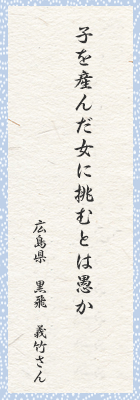 子を産んだ女に挑むとは愚か
広島県　黒飛　義竹さん